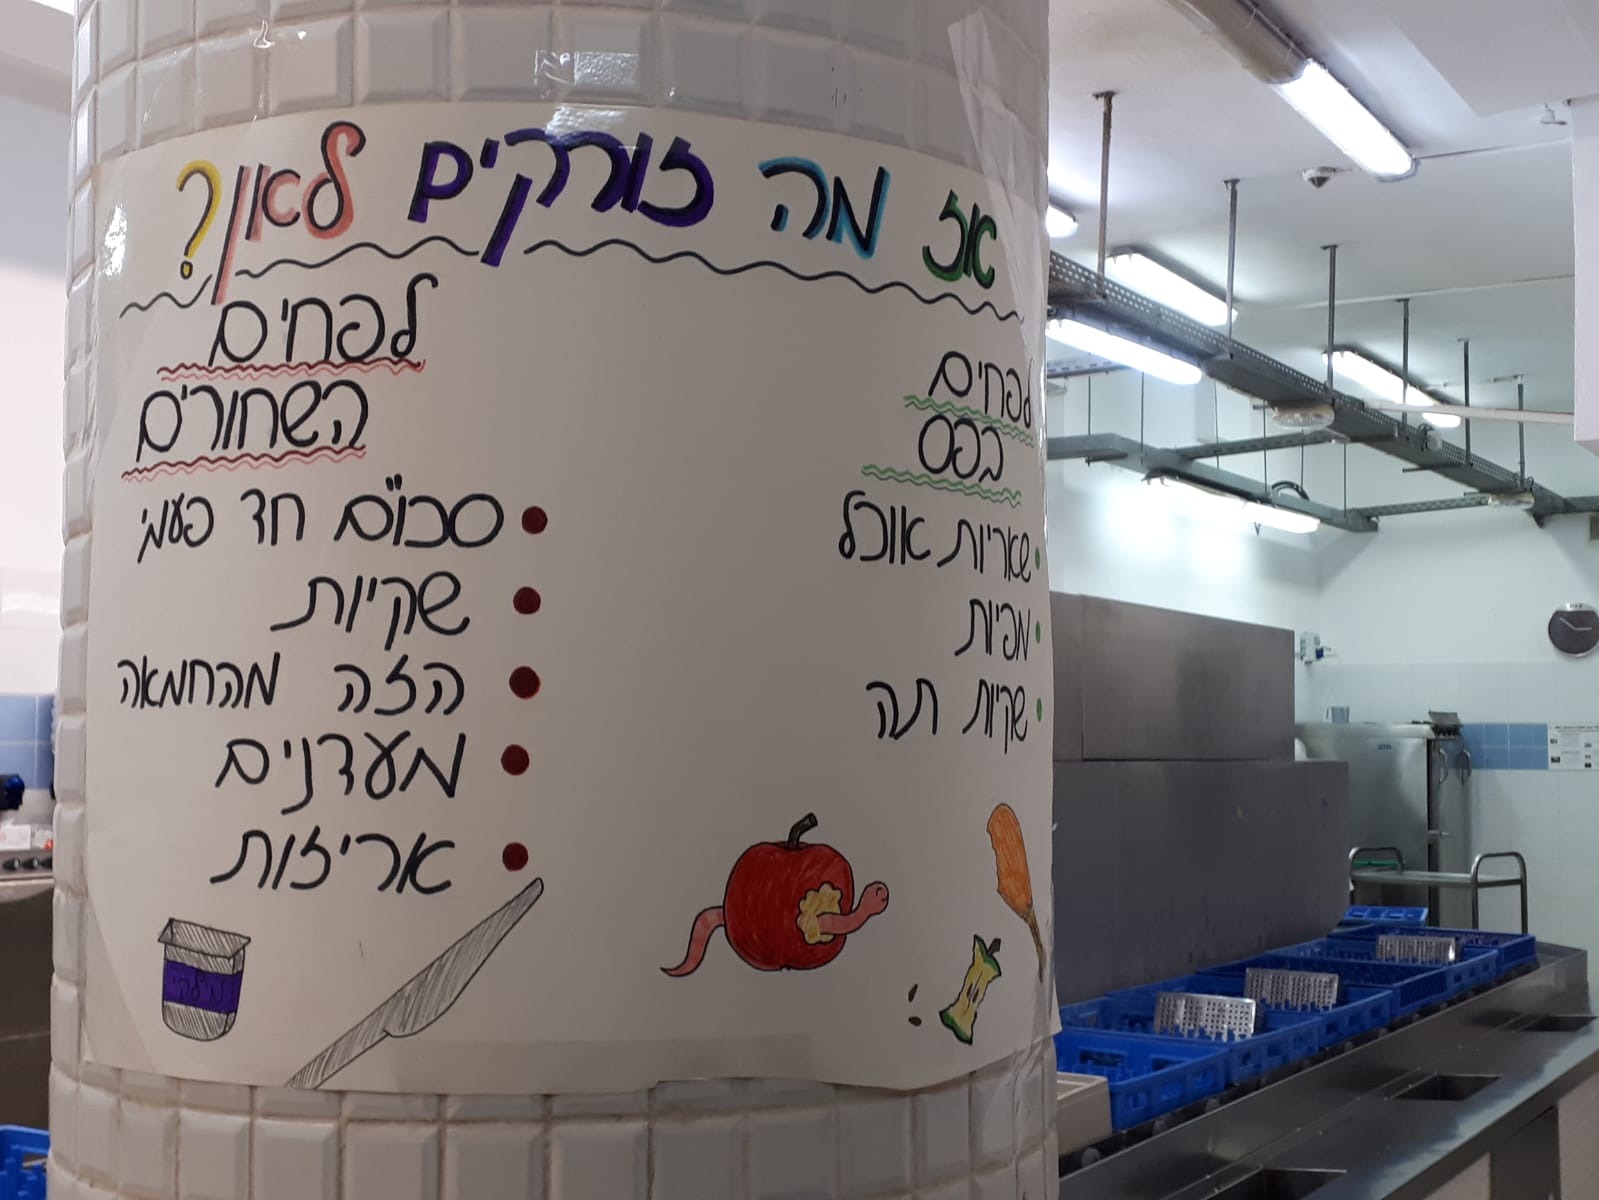 אז מה זורקים לאן?
לפחים
בפס
שאריות אוכל
מפיות
שקיות תה
לפחים
השחורים
סכו"ם חד פעמי
שקיות
הזה מהחמאה
מעדנים
אריזות
מילקי